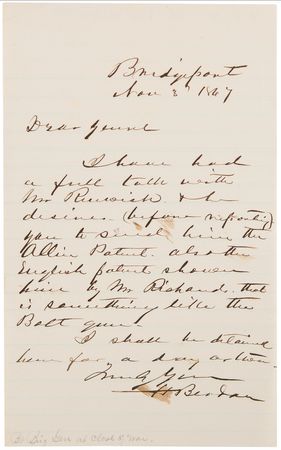 Bridgeport
Nov 3 1867
Dear
I have had
a full talk with
Mr Renwick & he
desires (before reporting)
you to send him the
Allin Patent. also the
English patent shown
him by Mr Richard. that
is something like the
Bolt gun.
I shall be detained
here for a day or two.
Truly Yours
H Berdan
Bv. Brig Gen at Close of War.